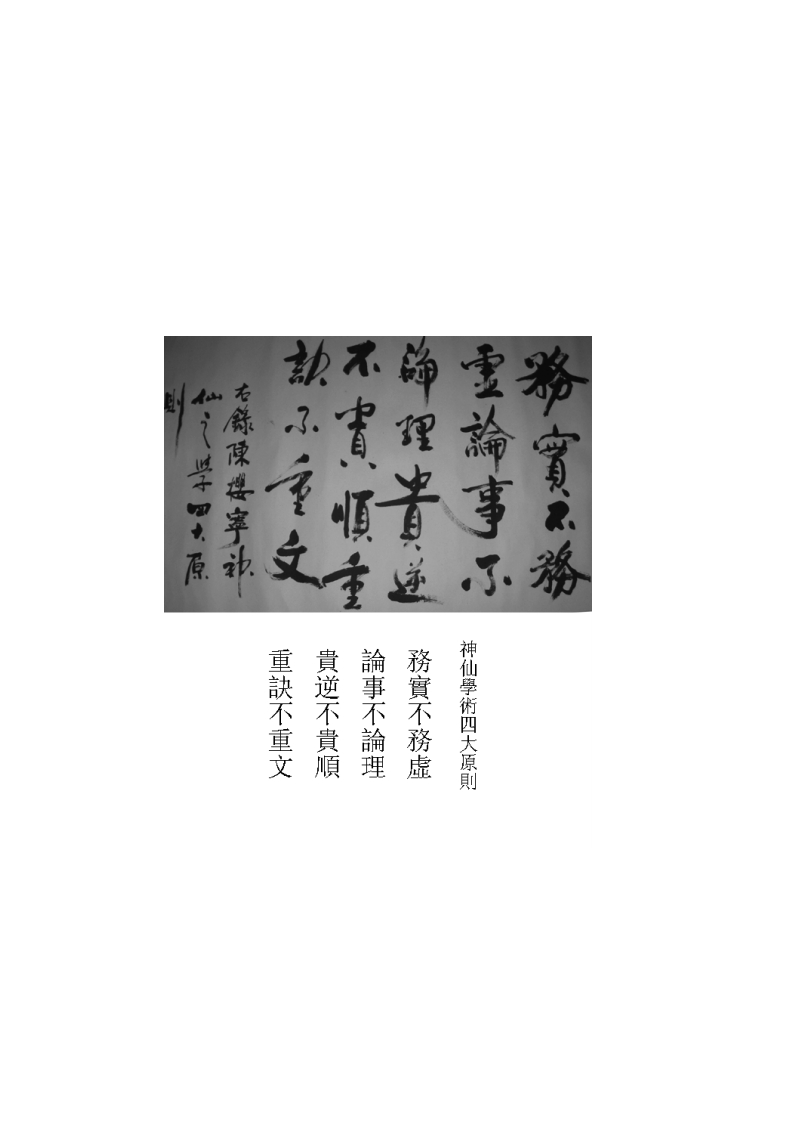 務實不務
虛論事不
論理貴逆
不貴順重
訣不重文
右錄陳攖寧神
仙之學四大原
則
神仙學術四大原則
務實不務虛
論事不論理
貴逆不貴順
重訣不重文